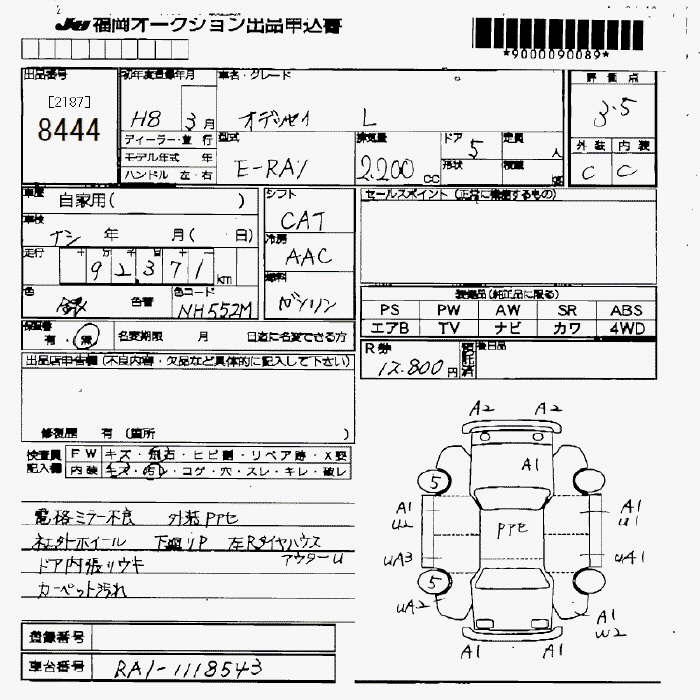 JU 福岡オークション出品申込書
*9000090089*
出品番号
[2187]
8444
初年度登録年月
H8 3月
ディーラー・並行
モデル年式 年
ハンドル 左・右
車名・グレード
オデッセイ L
型式
E-RA1
排気量
2.200 CC
ドア 5
形状
定員 人
積載 kg
評価点
3.5
外装 内装
C C
車歴
自家用( )
車検
ナシ 年 月( 日)
走行
十 万 千 百 十 一
92.371 km
色
銀 色替
色コード
NH552M
シフト
CAT
冷房
AAC
燃料
ガソリン
セールスポイント(正常に機能するもの)
装備品(純正品に限る)
PS PW AW SR ABS
エアB TV ナビ カワ 4WD
保証書
有・無
名変期限 月 日迄に名変できる方
R券
12.800円
預託済
後日品
出品店申告欄(不良内容・欠品など具体的に記入して下さい)
修復歴 有(箇所 )
検査員記入欄
FW キズ・飛石・ヒビ割・リペア跡・X要
内装 キズ・汚レ・コゲ・穴・スレ・キレ・破レ
電格ミラー不良 外装PPセ
社外ホイール 下廻りP 左Rタイヤハウス
アウターU
ドア内張りウキ
カーペット汚れ
登録番号
車台番号 RA1-1118543
A2 A2
A1
5
A1
U2
A1
U1
PPセ
UA3
UA1
5
UA2
A1
W2
A1 A1